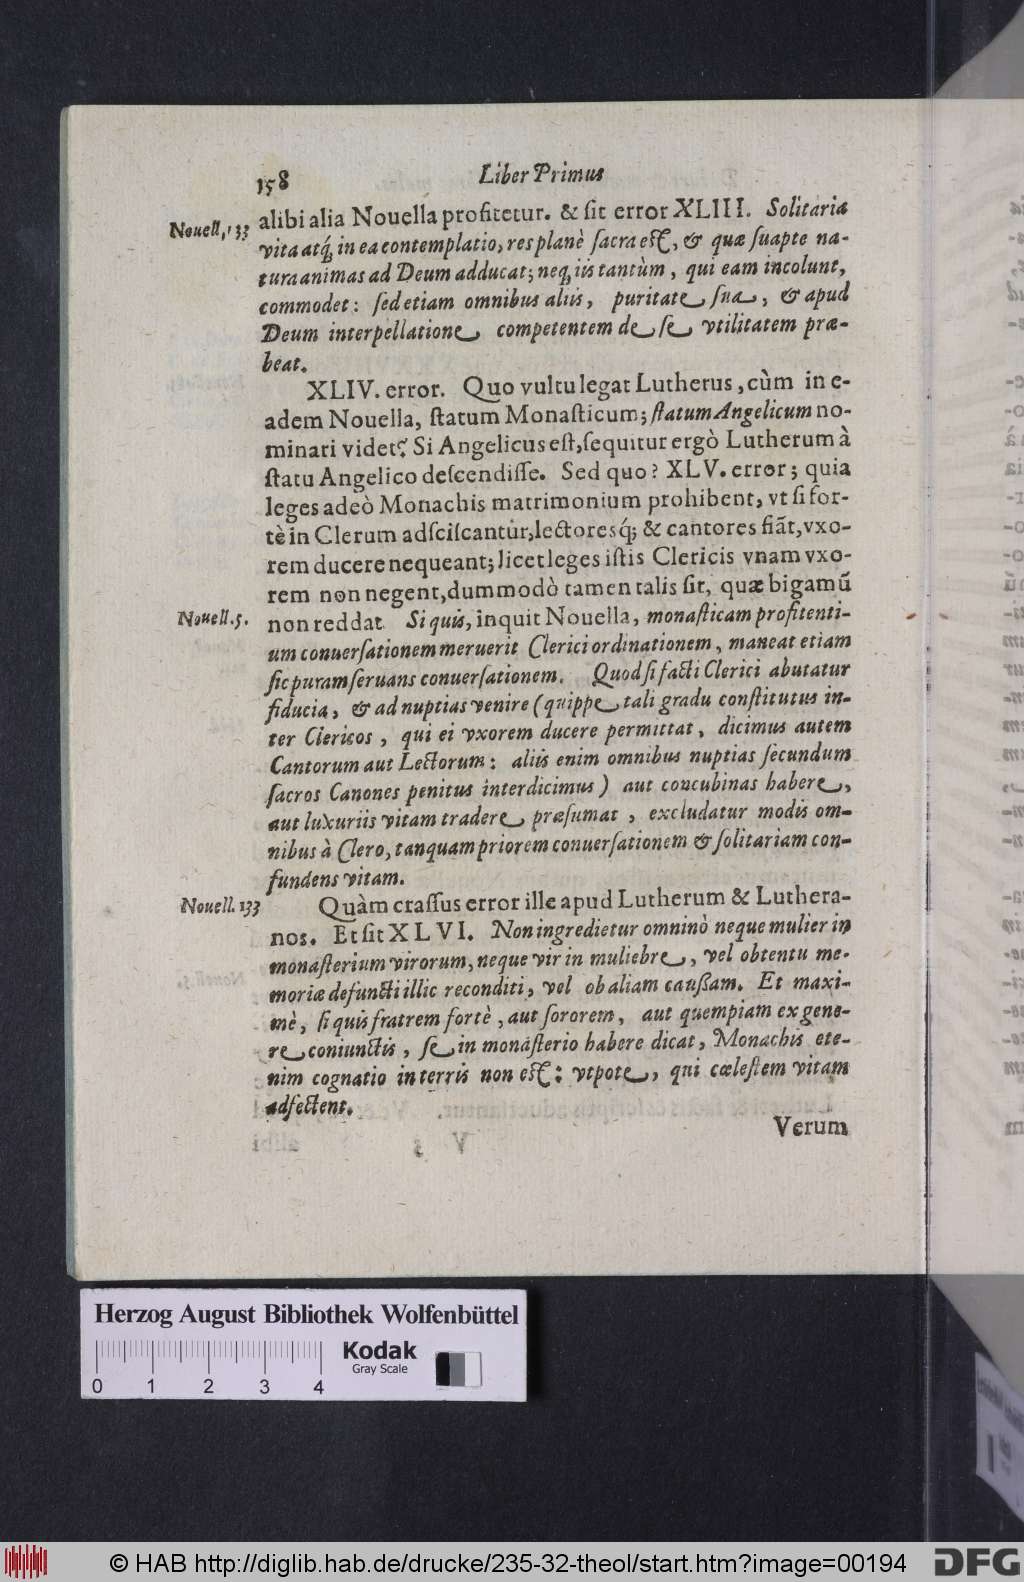 158 Liber Primus
Nouell. 133
alibi alia Nouella profitetur. & sit error XLIII. Solitaria
vita atq́; in ea contemplatio, res planè sacra est, & quæ suapte na-
tura animas ad Deum adducat; neq́; iis tantùm, qui eam incolunt,
commodet: sed etiam omnibus aliis, puritate sua, & apud
Deum interpellatione competentem de se vtilitatem præ-
beat.
XLIV. error. Quo vultu legat Lutherus, cùm in e-
adem Nouella, statum Monasticum; statum Angelicum no-
minari videt? Si Angelicus est, sequitur ergò Lutherum à
statu Angelico descendisse. Sed quo? XLV. error; quia
leges adeò Monachis matrimonium prohibent, vt si for-
tè in Clerum adsciscantur, lectoresq́; & cantores fiãt, vxo-
rem ducere nequeant; licet leges istis Clericis vnam vxo-
rem non negent, dummodò tamen talis sit, quæ bigamũ
Nouell. 5.
non reddat Si quis, inquit Nouella, monasticam profitenti-
um conuersationem meruerit Clerici ordinationem, maneat etiam
sic puram seruans conuersationem. Quod si facti Clerici abutatur
fiducia, & ad nuptias venire (quippe tali gradu constitutus in-
ter Clericos, qui ei vxorem ducere permittat, dicimus autem
Cantorum aut Lectorum: aliis enim omnibus nuptias secundum
sacros Canones penitus interdicimus) aut concubinas habere,
aut luxuriis vitam tradere præsumat, excludatur modis om-
nibus à Clero, tanquam priorem conuersationem & solitariam con-
fundens vitam.
Nouell. 133
Quàm crassus error ille apud Lutherum & Luthera-
nos. Et sit XLVI. Non ingredietur omninò neque mulier in
monasterium virorum, neque vir in muliebre, vel obtentu me-
moriæ defuncti illic reconditi, vel ob aliam caußam. Et maxi-
mè, si quis fratrem fortè, aut sororem, aut quempiam ex gene-
re coniunctis, se in monasterio habere dicat, Monachis ete-
nim cognatio in terris non est: vtpote, qui cœlestem vitam
adfectent.
Verum
Herzog August Bibliothek Wolfenbüttel
Kodak
Gray Scale
0 1 2 3 4
© HAB http://diglib.hab.de/drucke/235-32-theol/start.htm?image=00194
DFG